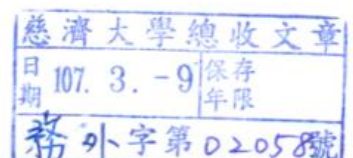 慈濟大學總收文章
日期 107. 3. -9 保存年限
務外字第02058號